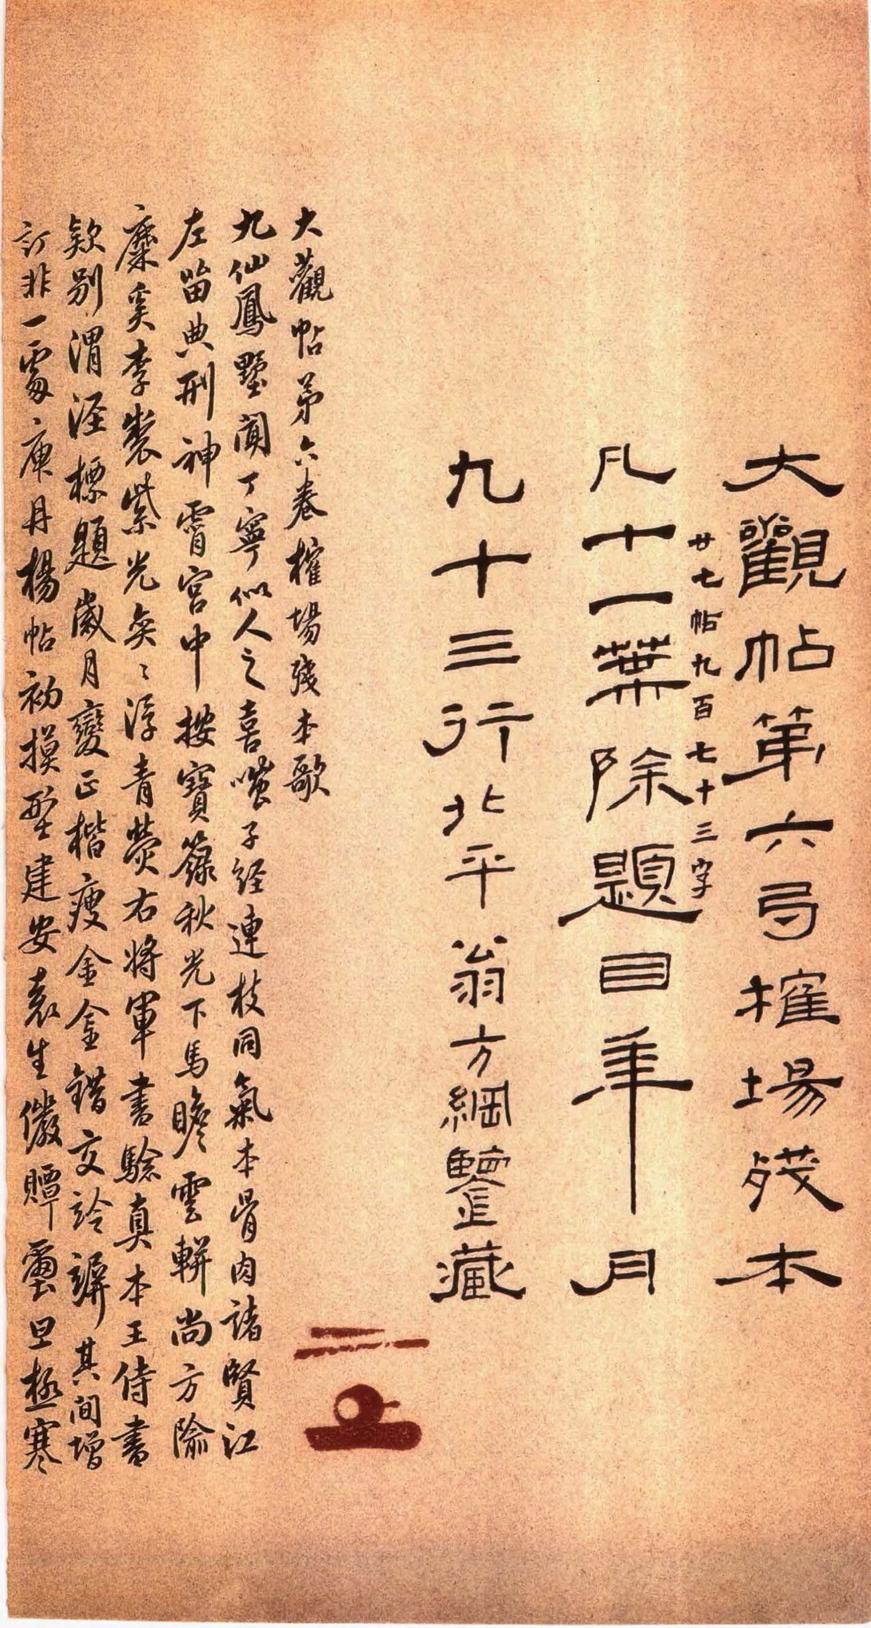 大觀帖第六弓榷場殘本
廿七帖九百七十三字
凡十一葉除題目年月
九十三行北平翁方綱鑒藏
大觀帖第六卷榷場殘本歌
九仙鳳墅聞丁寧似人之喜嗤子經連枝同氣本骨肉諸賢江
左留典刑神霄宮中按寶籙秋光下馬瞻雲軿尚方隃
麋奚李製紫光奕〻浮青熒右將軍書驗真本王侍書
款別渭涇標題歲月變正楷瘦金金錯交訡其間增
訂非一處庚丹楊帖初摸型建安袁生儌贉極寒